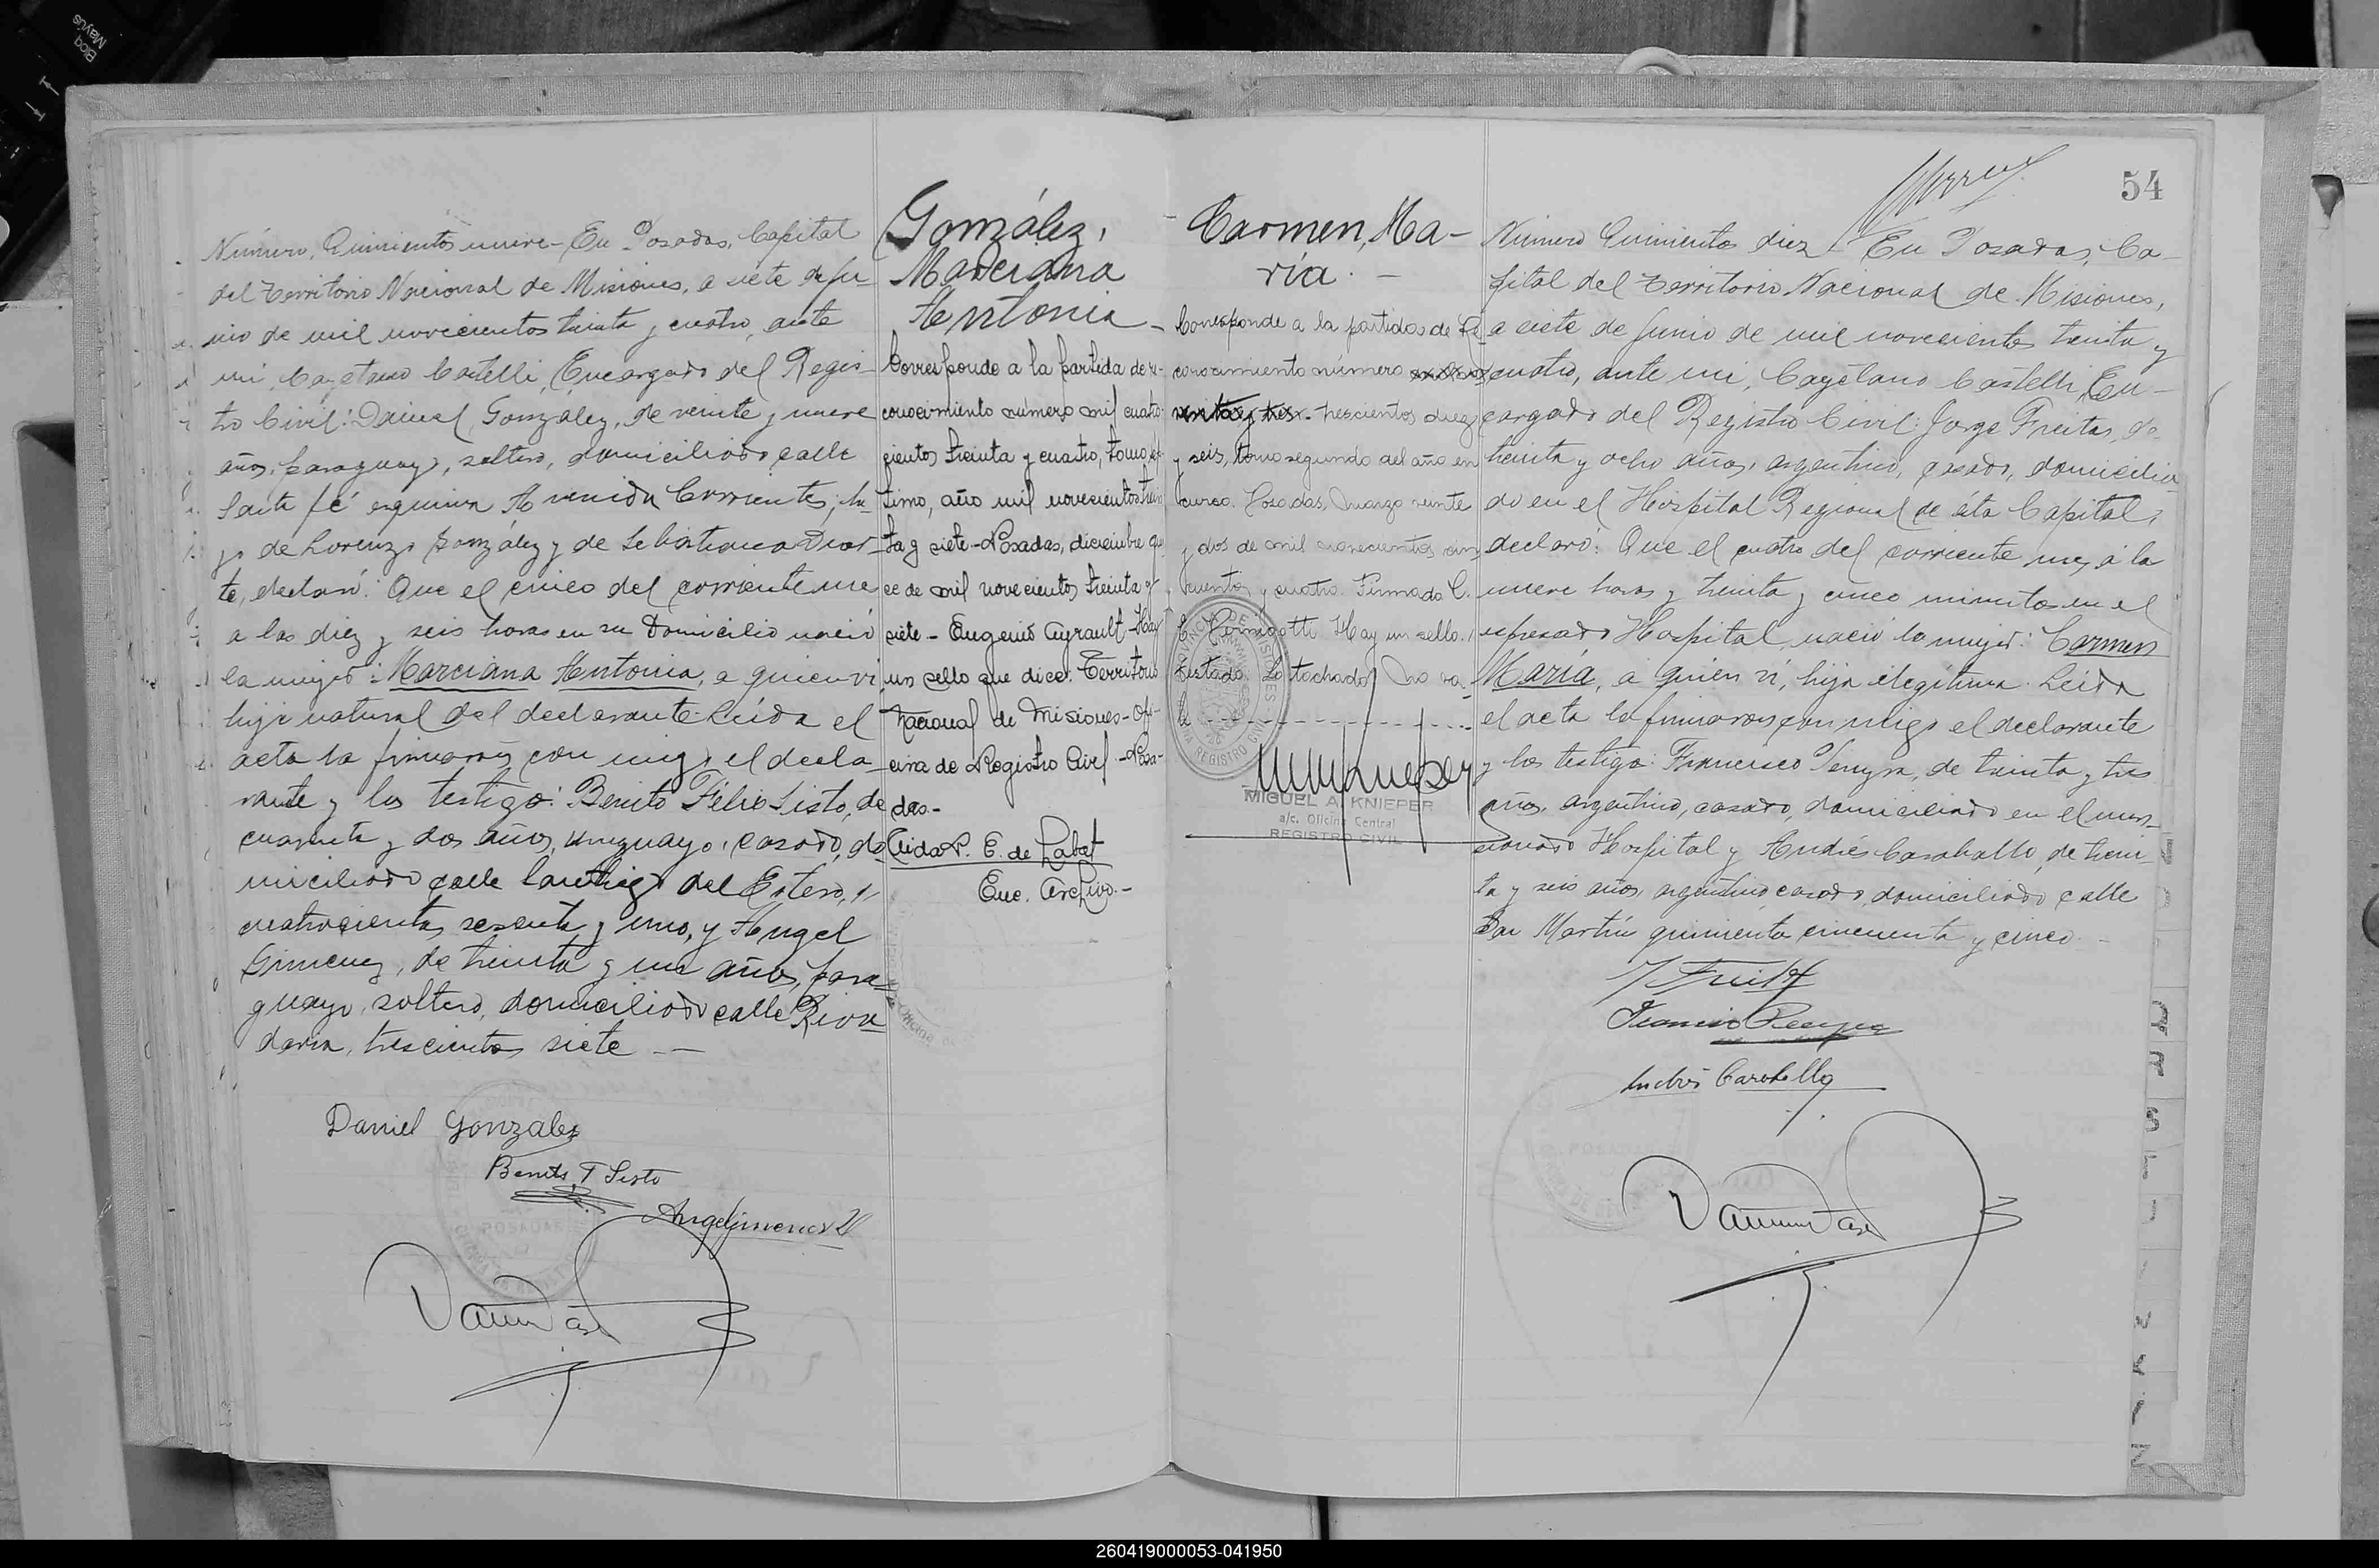 Número, Quinientos nueve - En Posadas, Capital
del Territorio Nacional de Misiones, a siete de ju-
nio de mil novecientos treinta y cuatro, ante
mi, Cayetano Castelli, Encargado del Regis-
tro Civil: Daniel González, de veinte y nueve
años, paraguayo, soltero, domiciliado calle
Santa fé esquina Avenida Corrientes, hi-
jo de Lorenzo González y de Sebastiana Duar-
te, declaró: Que el cinco del corriente mes
a las diez y seis horas en su Domicilio nació
la mujer: Marciana Antonia, a quien vi
hija natural del declarante. Leída el
acta la firmaron con migo el decla-
rante y los testigos: Benito Félix Sisto, de
cuarenta y dos años, uruguayo, casado, do
miciliado calle Santiago del Estero,
cuatrocientos sesenta y uno, y Angel
Gimenez, de treinta y un años, para-
guayo, soltero, domiciliado calle Riva
davia, trescientos siete - —
Daniel González
Benito F Sisto
Angel Gimenez
González,
Marciana
Antonia -
Corresponde a la partida de re-
conocimiento número mil cuatro-
cientos treinta y cuatro, tomo sep-
timo, año mil novecientos trein
ta y siete - Posadas, diciembre quin
ce de mil novecientos treinta y
siete - Eugenio Ayrault - Hay
un sello que dice: Territorio
Nacional de Misiones - Ofi-
cina de Registro Civil - Posa-
das.-
P. E. de Labat
Enc. Archivo.-
Carmen, Ma-
ría. -
Corresponde a la partidas de Re
conocimiento número
trescientos diez
y seis, tomo segundo del año en
curso. Posadas, Marzo veinte
y dos de mil novecientos cin
cuenta y cuatro. Firmado C.
Hay un sello.
Testado: Lo tachado: No va
le
MIGUEL A. KNIEPER
a/c. Oficina Central
REGISTRO CIVIL
54
Número Quinientos diez - En Posadas, Ca-
pital del Territorio Nacional de Misiones,
a siete de Junio de mil novecientos treinta y
cuatro, ante mi, Cayetano Castelli, En-
cargado del Registro Civil: Jorge Freitas, de
treinta y ocho años, argentino, casado, domicilia
do en el Hospital Regional de ésta Capital,
declaró: Que el cuatro del corriente mes, a la
nueve horas y treinta y cinco minutos en el
expresado Hospital, nació la mujer: Carmen
María, a quien ví, hija ilegítima. Leída
el acta la firmaron con migo el declarante
y los testigo: Francisco Pereyra, de treinta y tres
años, argentino, casado, domiciliado en el men-
cionado Hospital y Andrés Caraballo, de trein-
ta y seis años, argentino casado, domiciliado calle
San Martín quiniento cincuenta y cinco. -
J Freitas
Francisco Pereyra
Andrés Caraballo
260419000053-041950